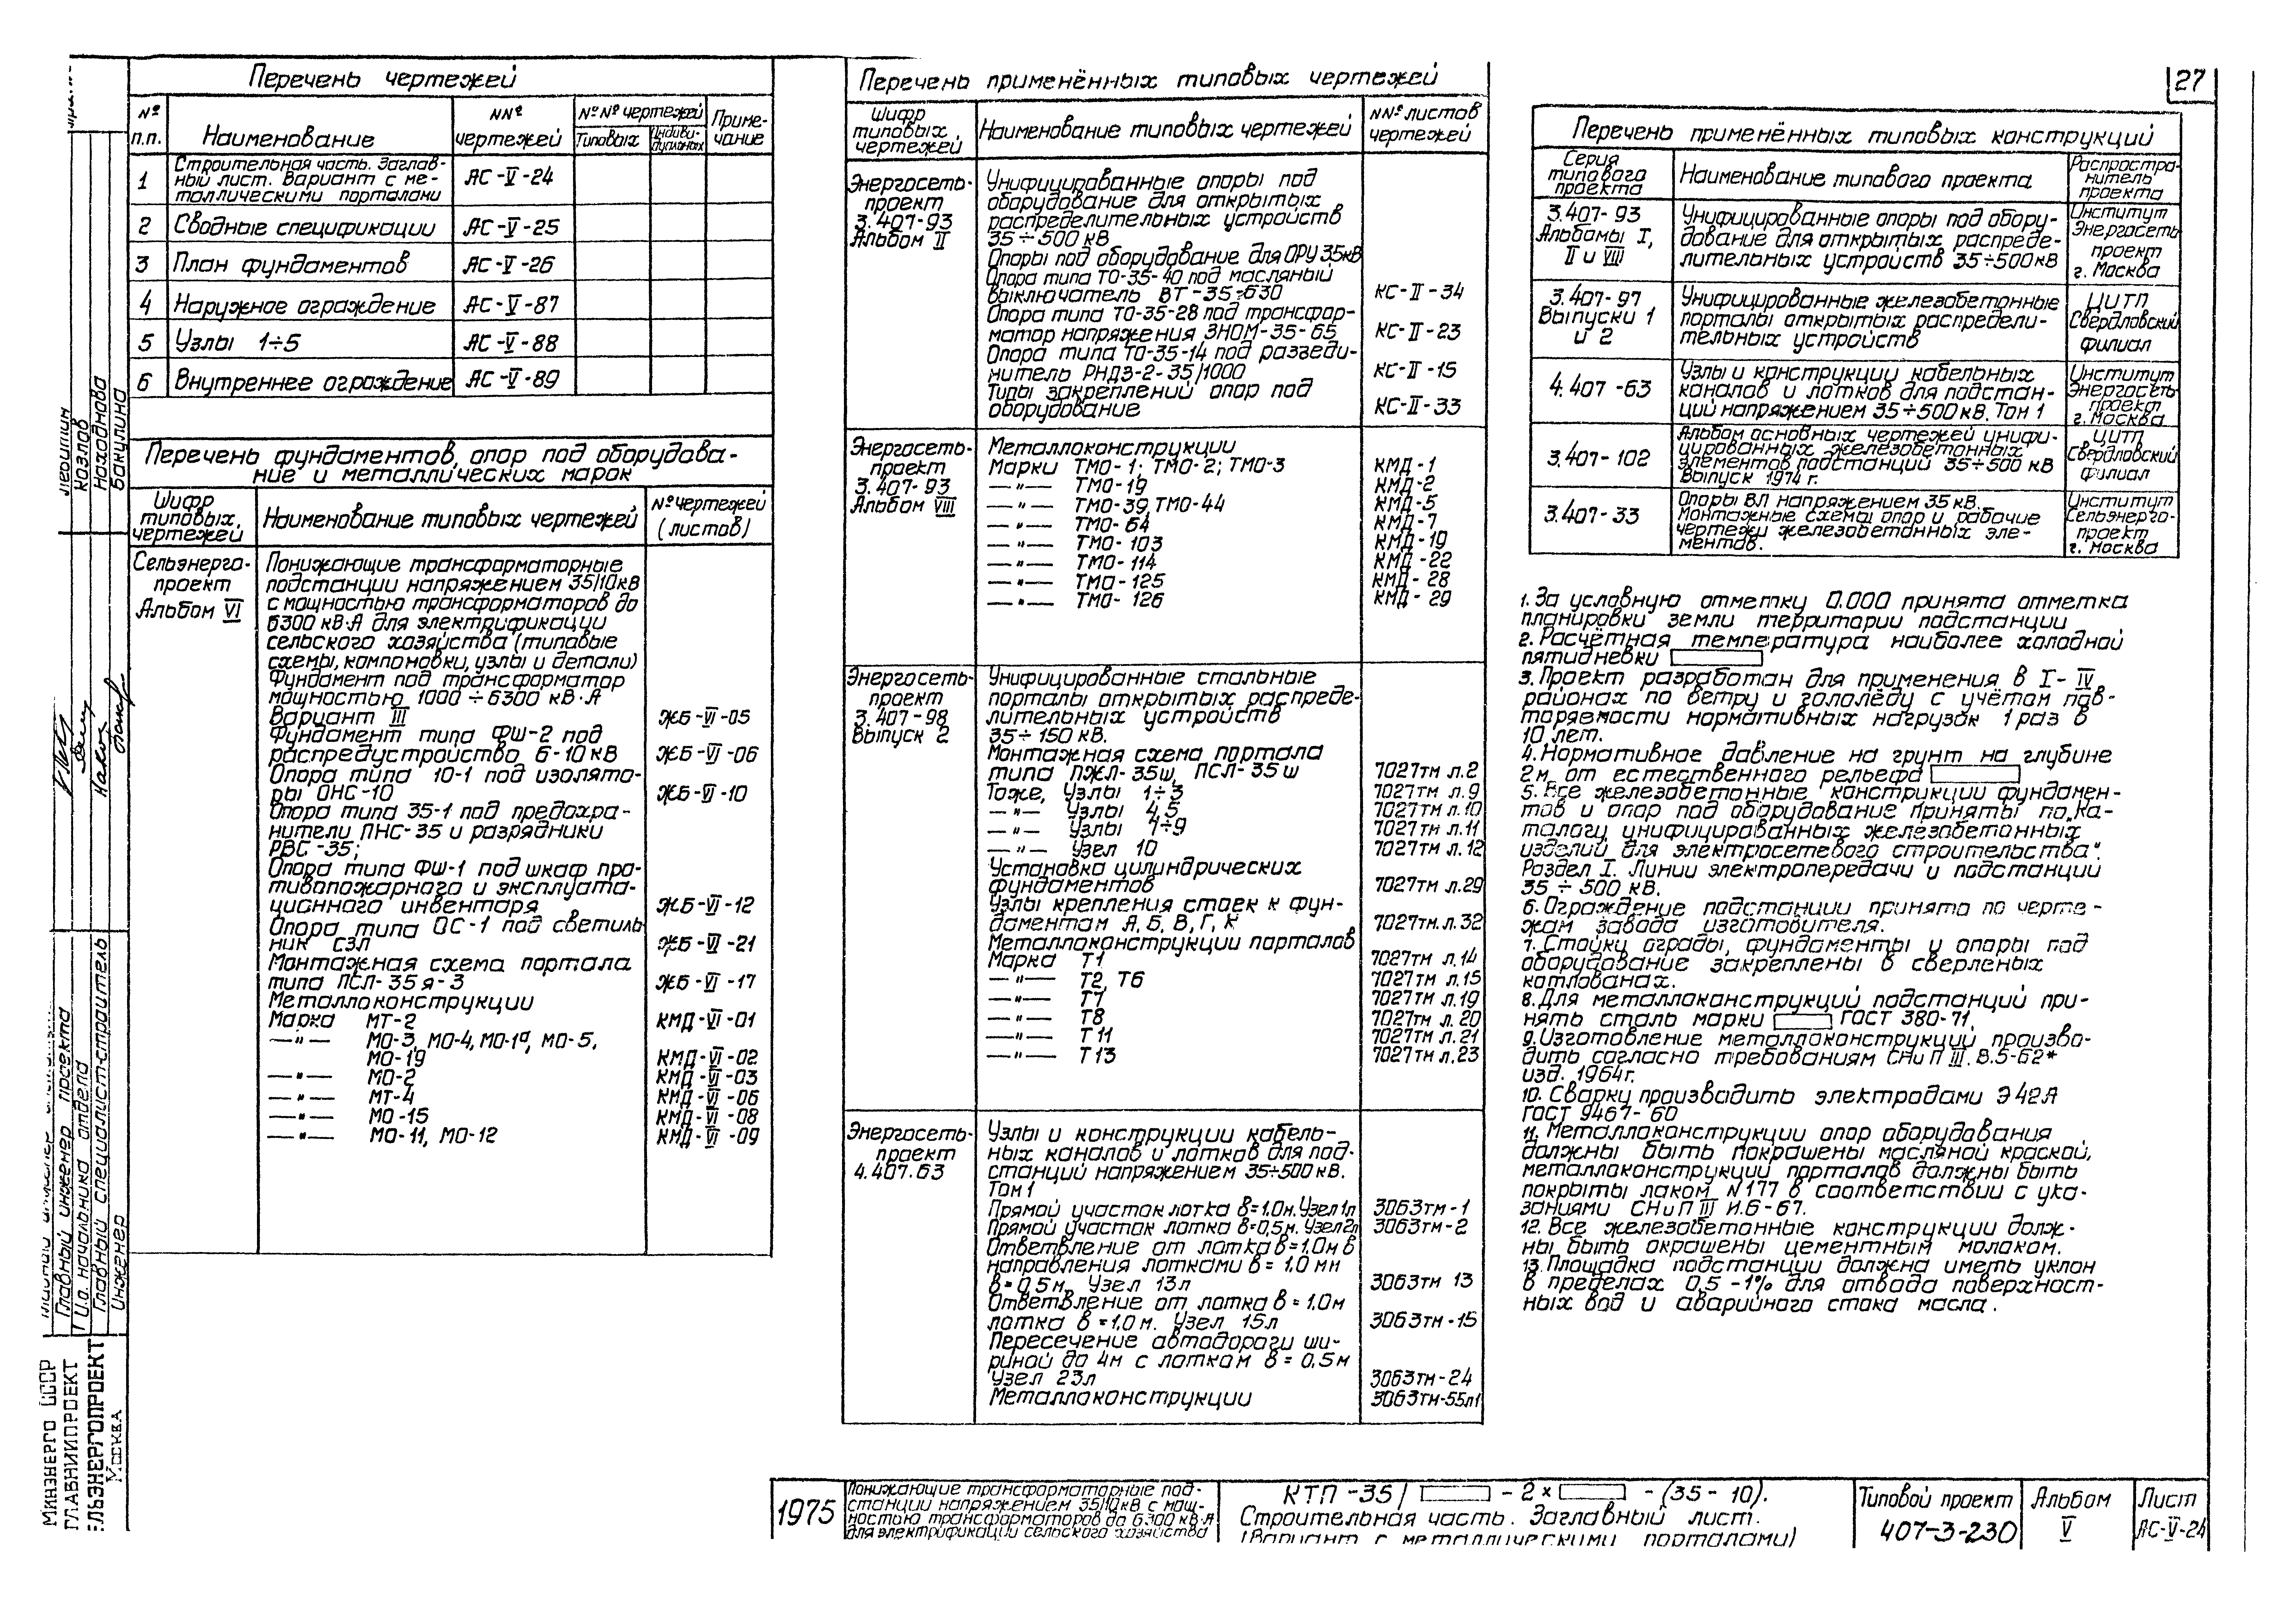 27
Перечень чертежей
№ п.п.
Наименование
№№ чертежей
№№ чертежей
Типовых
Индивидуальных
Примечание
1 Строительная часть. Заглав-
ный лист. Вариант с ме-
таллическими порталами АС-V-24
2 Сводные спецификации АС-V-25
3 План фундаментов АС-V-26
4 Наружное ограждение АС-V-87
5 Узлы 1÷5 АС-V-88
6 Внутреннее ограждение АС-V-89
Перечень фундаментов, опор под оборудова-
ние и металлических марок
Шифр типовых чертежей
Наименование типовых чертежей
№ чертежей (листов)
Сельэнерго-
проект
Альбом VI
Понижающие трансформаторные
подстанции напряжением 35/10кВ
с мощностью трансформаторов до
6300 кВ·А для электрификации
сельского хозяйства (типовые
схемы, компоновки, узлы и детали)
Фундамент под трансформатор
мощностью 1000÷6300 кВ·А
Вариант III ЖБ-VI-05
Фундамент типа ФШ-2 под
распредустройство 6-10кВ ЖБ-VI-06
Опора типа 10-1 под изолято-
ры ОНС-10 ЖБ-VI-10
Опора типа 35-1 под предохра-
нители ПНС-35 и разрядники
РВС-35;
Опора типа ФШ-1 под шкаф про-
тивопожарного и эксплуата-
ционного инвентаря ЖБ-VI-12
Опора типа ОС-1 под светиль
ник СЗЛ ЖБ-VI-21
Монтажная схема портала
типа ПСЛ-35я-3 ЖБ-VI-17
Металлоконструкции
Марка МТ-2 КМД-VI-01
—"— МО-3, МО-4, МО-1а, МО-5,
МО-19 КМД-VI-02
—"— МО-2 КМД-VI-03
—"— МТ-4 КМД-VI-06
—"— МО-15 КМД-VI-08
—"— МО-11, МО-12 КМД-VI-09
Перечень применённых типовых чертежей
Шифр типовых чертежей
Наименование типовых чертежей
№№ листов чертежей
Энергосеть-
проект
3.407-93
Альбом II
Унифицированные опоры под
оборудование для открытых
распределительных устройств
35÷500 кВ
Опоры под оборудование для ОРУ 35кВ
Опора типа ТО-35-40 под масляный
выключатель ВТ-35-630 КС-II-34
Опора типа ТО-35-28 под трансфор-
матор напряжения ЗНОМ-35-65 КС-II-23
Опора типа ТО-35-14 под разъеди-
нитель РНДЗ-2-35/1000 КС-II-15
Типы закреплений опор под
оборудование КС-II-33
Энергосеть-
проект
3.407-93
Альбом VIII
Металлоконструкции
Марки ТМО-1; ТМО-2; ТМО-3 КМД-1
—"— ТМО-19 КМД-2
—"— ТМО-39, ТМО-44 КМД-5
—"— ТМО-64 КМД-7
—"— ТМО-103 КМД-19
—"— ТМО-114 КМД-22
—"— ТМО-125 КМД-28
—"— ТМО-126 КМД-29
Энергосеть-
проект
3.407-98
Выпуск 2
Унифицированные стальные
порталы открытых распреде-
лительных устройств
35÷150 кВ.
Монтажная схема портала
типа ПЖЛ-35ш, ПСЛ-35ш 7027тм л.2
Тоже, Узлы 1÷3 7027тм л.9
—"— Узлы 4,5 7027тм л.10
—"— Узлы 7÷9 7027тм л.11
—"— Узел 10 7027тм л.12
Установка цилиндрических
фундаментов 7027тм л.29
Узлы крепления стоек к фун-
даментам А, Б, В, Г, К 7027тм.л.32
Металлоконструкции порталов
Марка Т1 7027тм л.14
—"— Т2, Т6 7027тм л.15
—"— Т7 7027тм л.19
—"— Т8 7027тм л.20
—"— Т11 7027тм л.21
—"— Т13 7027тм л.23
Энергосеть-
проект
4.407.63
Узлы и конструкции кабель-
ных каналов и лотков для под-
станций напряжением 35÷500кВ.
Том 1
Прямой участок лотка в=1.0м. Узел 1л 3063тм-1
Прямой участок лотка в=0,5м. Узел 2л 3063тм-2
Ответвление от лотка в=1.0м в
направления лотками в=1.0 м и
в=0,5м, Узел 13л 3063тм 13
Ответвление от лотка в=1.0м
лотка в=1.0м. Узел 15л 3063тм-15
Пересечение автодороги ши-
риной до 4м с лотком в=0,5м
Узел 23л 3063тм-24
Металлоконструкции 3063тм-55л1
Перечень применённых типовых конструкций
Серия типового проекта
Наименование типового проекта
Распростра-
нитель
проекта
3.407-93
Альбомы I,
II и VIII
Унифицированные опоры под обору-
дование для открытых распреде-
лительных устройств 35÷500кВ
Институт
Энергосеть
проект
г. Москва
3.407-97
Выпуски 1
и 2
Унифицированные железобетонные
порталы открытых распредели-
тельных устройств
ЦИТП
Свердловский
филиал
4.407-63
Узлы и конструкции кабельных
каналов и лотков для подстан-
ций напряжением 35÷500кВ. Том 1
Институт
Энергосеть-
проект
г. Москва
3.407-102
Альбом основных чертежей унифи-
цированных железобетонных
элементов подстанций 35÷500 кВ
Выпуск 1974г.
ЦИТП
Свердловский
филиал
3.407-33
Опоры ВЛ напряжением 35 кВ.
Монтажные схемы опор и рабочие
чертежи железобетонных эле-
ментов.
Институт
Сельэнерго-
проект
г. Москва
1. За условную отметку 0.000 принята отметка
планировки земли территории подстанции
2. Расчётная температура наиболее холодной
пятидневки
3. Проект разработан для применения в I-IV
районах по ветру и гололёду с учётом пов-
торяемости нормативных нагрузок 1 раз в
10 лет.
4. Нормативное давление на грунт на глубине
2м от естественного рельефа
5. Все железобетонные конструкции фундамен-
тов и опор под оборудование приняты по „Ка-
талогу унифицированных железобетонных
изделий для электросетевого строительства".
Раздел I. Линии электропередачи и подстанции
35÷500 кВ.
6. Ограждение подстанции принято по черте-
жам завода изготовителя.
7. Стойки ограды, фундаменты и опоры под
оборудование закреплены в сверленых
котлованах.
8. Для металлоконструкций подстанций при-
нять сталь марки ГОСТ 380-71.
9. Изготовление металлоконструкций произво-
дить согласно требованиям СНиП III. В.5-62*
изд. 1964г.
10. Сварку производить электродами Э42А
ГОСТ 9467-60
11. Металлоконструкции опор оборудования
должны быть покрашены масляной краской,
металлоконструкции порталов должны быть
покрыты лаком N177 в соответствии с ука-
заниями СНиП III И.6-67.
12. Все железобетонные конструкции долж-
ны быть окрашены цементным молоком.
13. Площадка подстанции должна иметь уклон
в пределах 0,5-1% для отвода поверхност-
ных вод и аварийного стока масла.
Левитин
Козлов
Находнова
Бакулина
Главный инженер проекта
И.о. начальника отдела
Главный специалист-строитель
Инженер
Минэнерго СССР
ГЛАВНИИПРОЕКТ
СЕЛЬЭНЕРГОПРОЕКТ
Москва
1975
Понижающие трансформаторные под-
станции напряжением 35/10кВ с мощ-
ностью трансформаторов до 6300 кВ·А
для электрификации сельского хозяйства
КТП-35/ - 2× - (35-10).
Строительная часть. Заглавный лист.
(Вариант с металлическими порталами)
Типовой проект
407-3-230
Альбом
V
Лист
АС-V-24